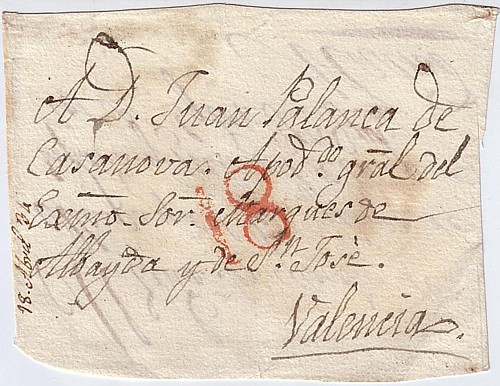 A D. Juan Palanca de
Casanova. Apod.do gral del
Exmo Sor. Marques de
Albayda y de Sn. Josè.
Valencia.
8
18. Abril